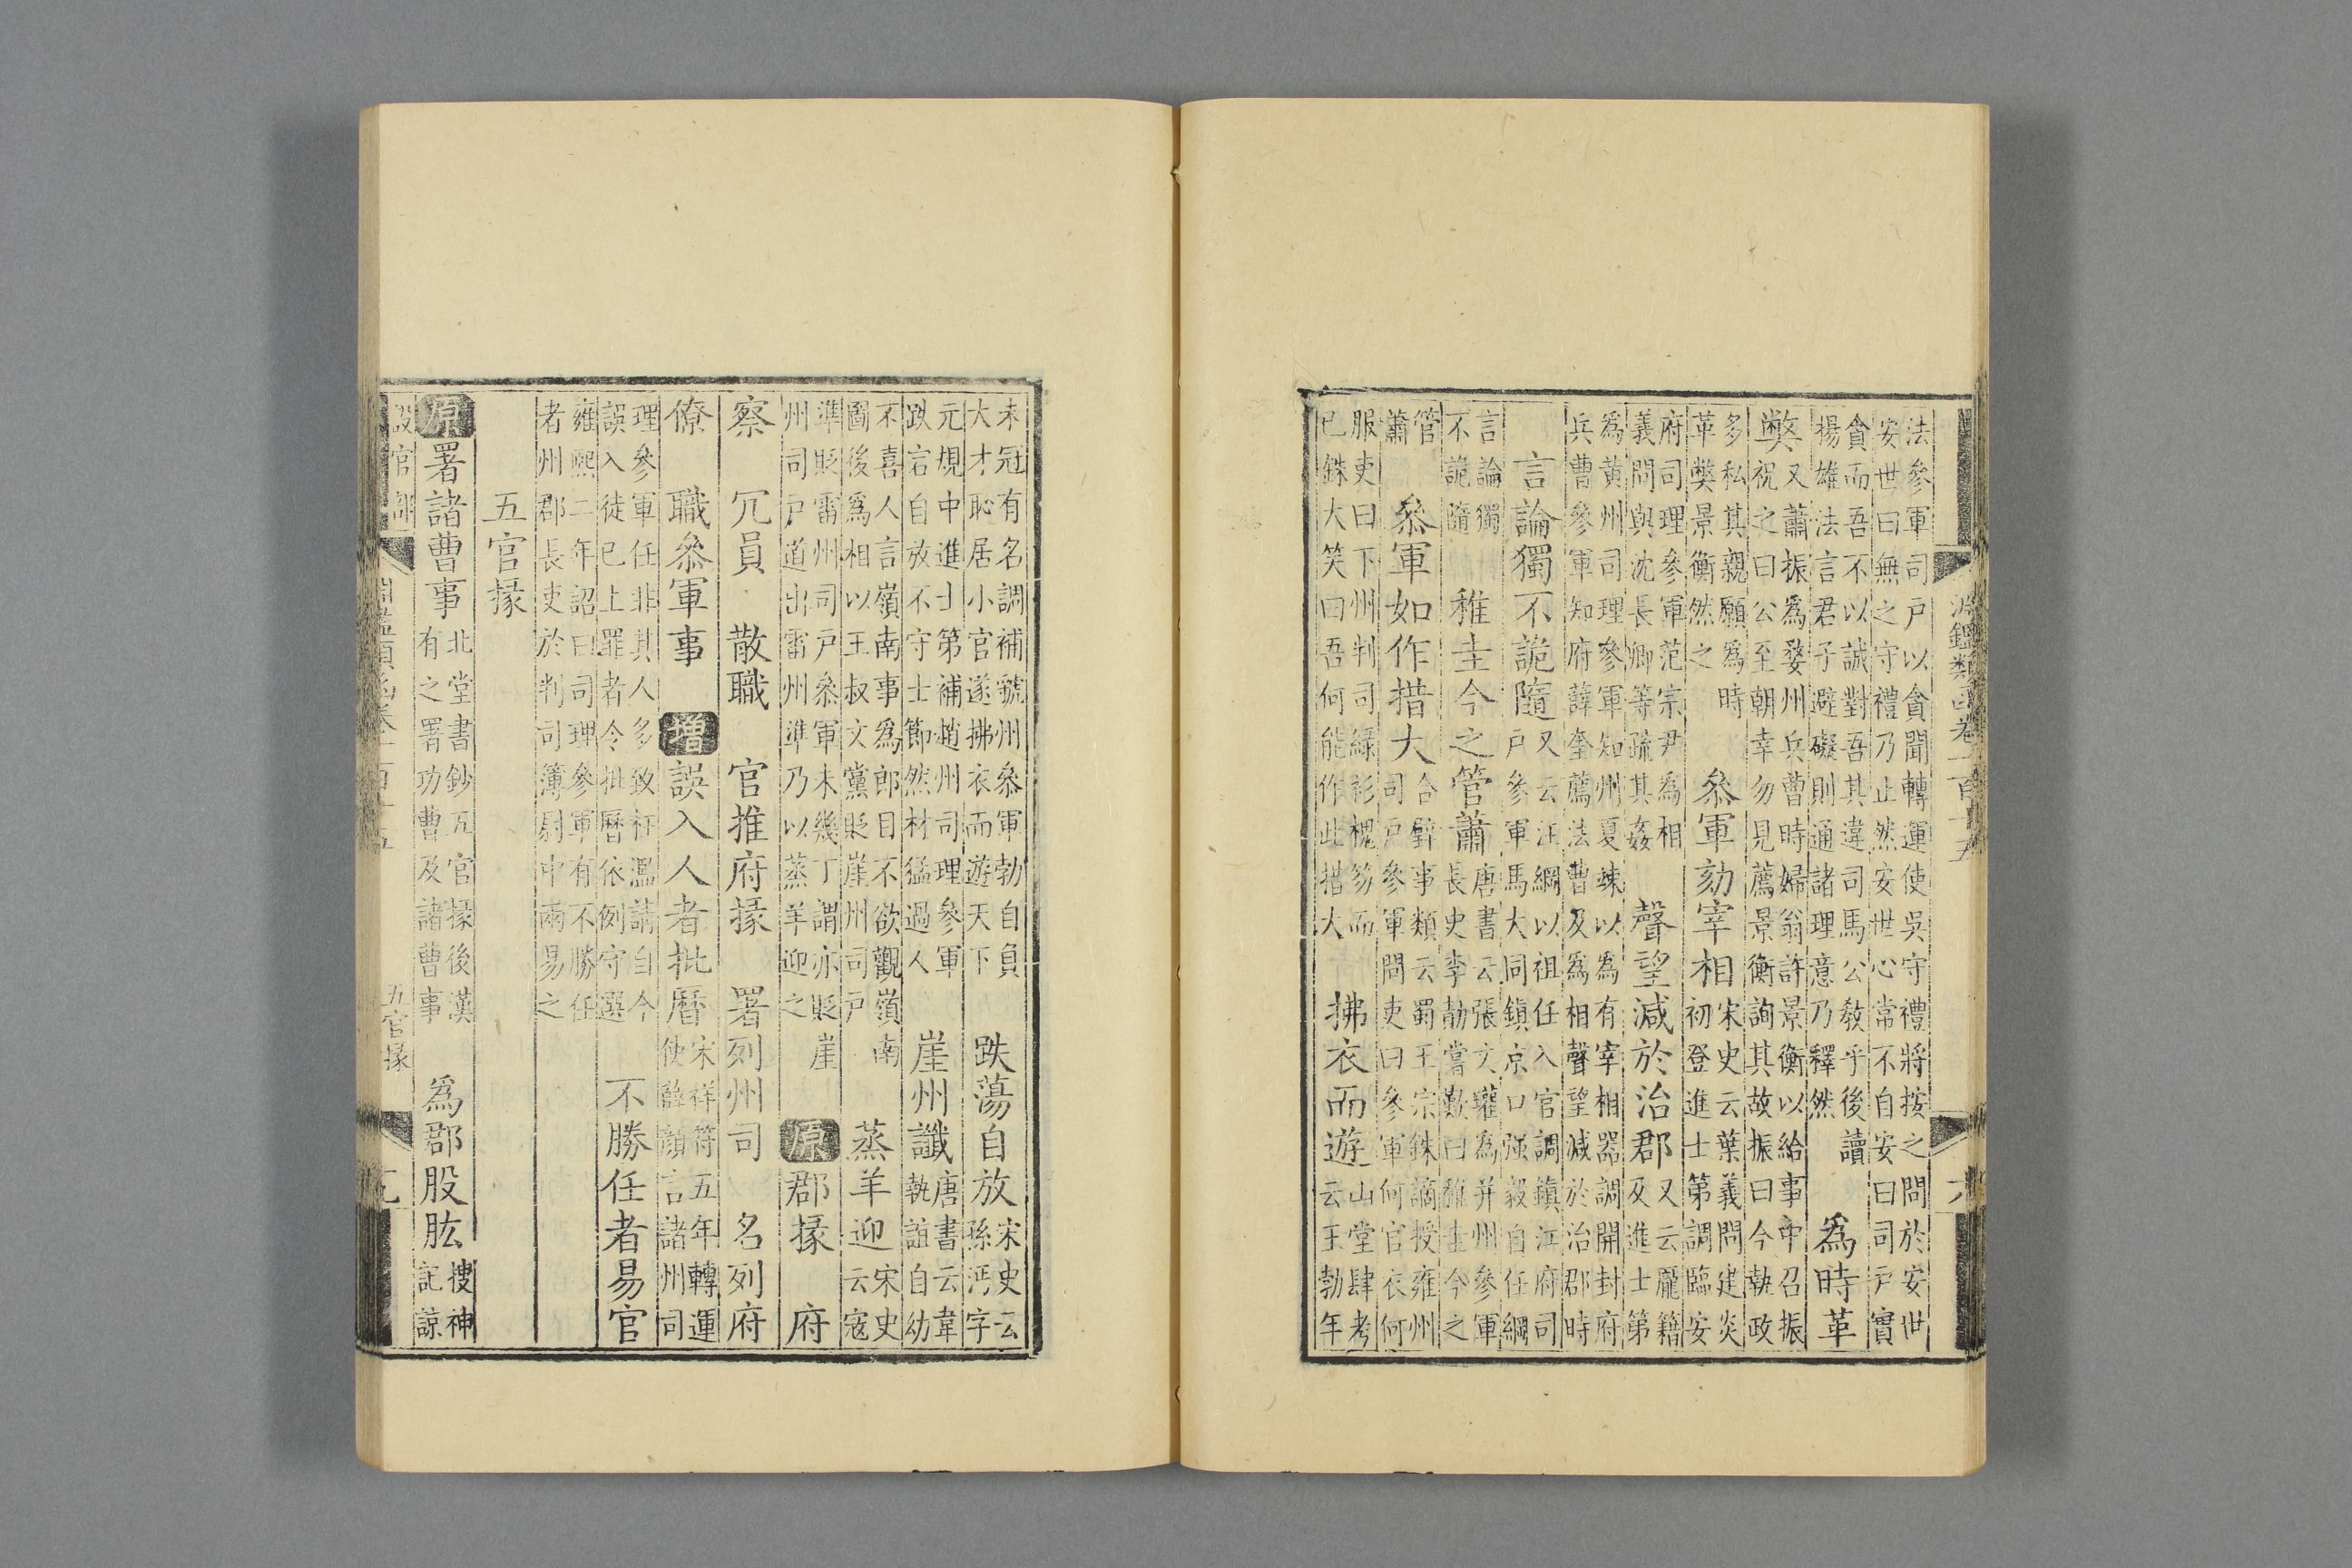 淵鑑類函卷一百十五
法參軍司戶以貪聞轉運使吳守禮將按之問於安世
安世曰無之守禮乃止然安世心常不自安曰司戶實
貪而吾不以誠對吾其違司馬公教乎後讀
揚雄法言君子避礙則通諸理意乃釋然
為時革
獘
又蕭振為婺州兵曹時婦翁許景衡以給事中召振
祝之曰公至朝幸勿見薦景衡詢其故振曰今執政
多私其親願為時
革獘景衡然之
叅軍劾宰相
宋史云葉義問建炎
初登進士第調臨安
府司理參軍范宗尹為相
義問與沈長卿等疏其姦
聲望減於治郡
又云龐籍
及進士第
為黃州司理參軍知州夏竦以為有宰相器調開封府
兵曹參軍知府薛奎薦法曹及為相聲望減於治郡時
言論獨不詭隨
又云汪綱以祖任入官調鎮江府司
戶參軍馬大同鎮京口强毅自任綱
言論獨
不詭隨
稚圭今之管蕭
唐書云張文瓘為并州參軍
長史李勣嘗歎曰稚圭今之
管
蕭
叅軍如作措大
合璧事類云蜀王宗銖謫授雍州
司戶參軍問吏曰參軍何官衣何
服吏曰下州判司綠衫槐笏而
已銖大笑曰吾何能作此措大
拂衣而遊
山堂肆考
云王勃年
未冠有名調補虢州叅軍勃自負
大才恥居小官遂拂衣而遊天下
跌蕩自放
宋史云
孫沔字
元規中進士第補趙州司理參軍
跌宕自放不守士節然材猛過人
崖州讖
唐書云韋
執誼自幼
不喜人言嶺南事為郎目不欲觀嶺南
圖後為相以王叔文黨貶崖州司戶
蒸羊迎
宋史
云寇
準貶雷州司戶叅軍未幾丁謂亦貶崖
州司戶道出雷州準乃以蒸羊迎之
原 郡掾 府
察 冗員 散職 官推府掾 署列州司 名列府
僚 職叅軍事 增 誤入人者批曆
宋祥符五年轉運
使薛顏言諸州司
理參軍任非其人多致枉濫請自今
誤入徒已上罪者令批曆依例守選
不勝任者易官
雍熙二年詔曰司理參軍有不勝任
者州郡長吏於判司簿尉中兩易之
五官掾
原 署諸曹事
北堂書鈔五官掾後漢
有之署功曹及諸曹事
為郡股肱
搜神
記諒
淵鑑類函卷一百十五
五官掾